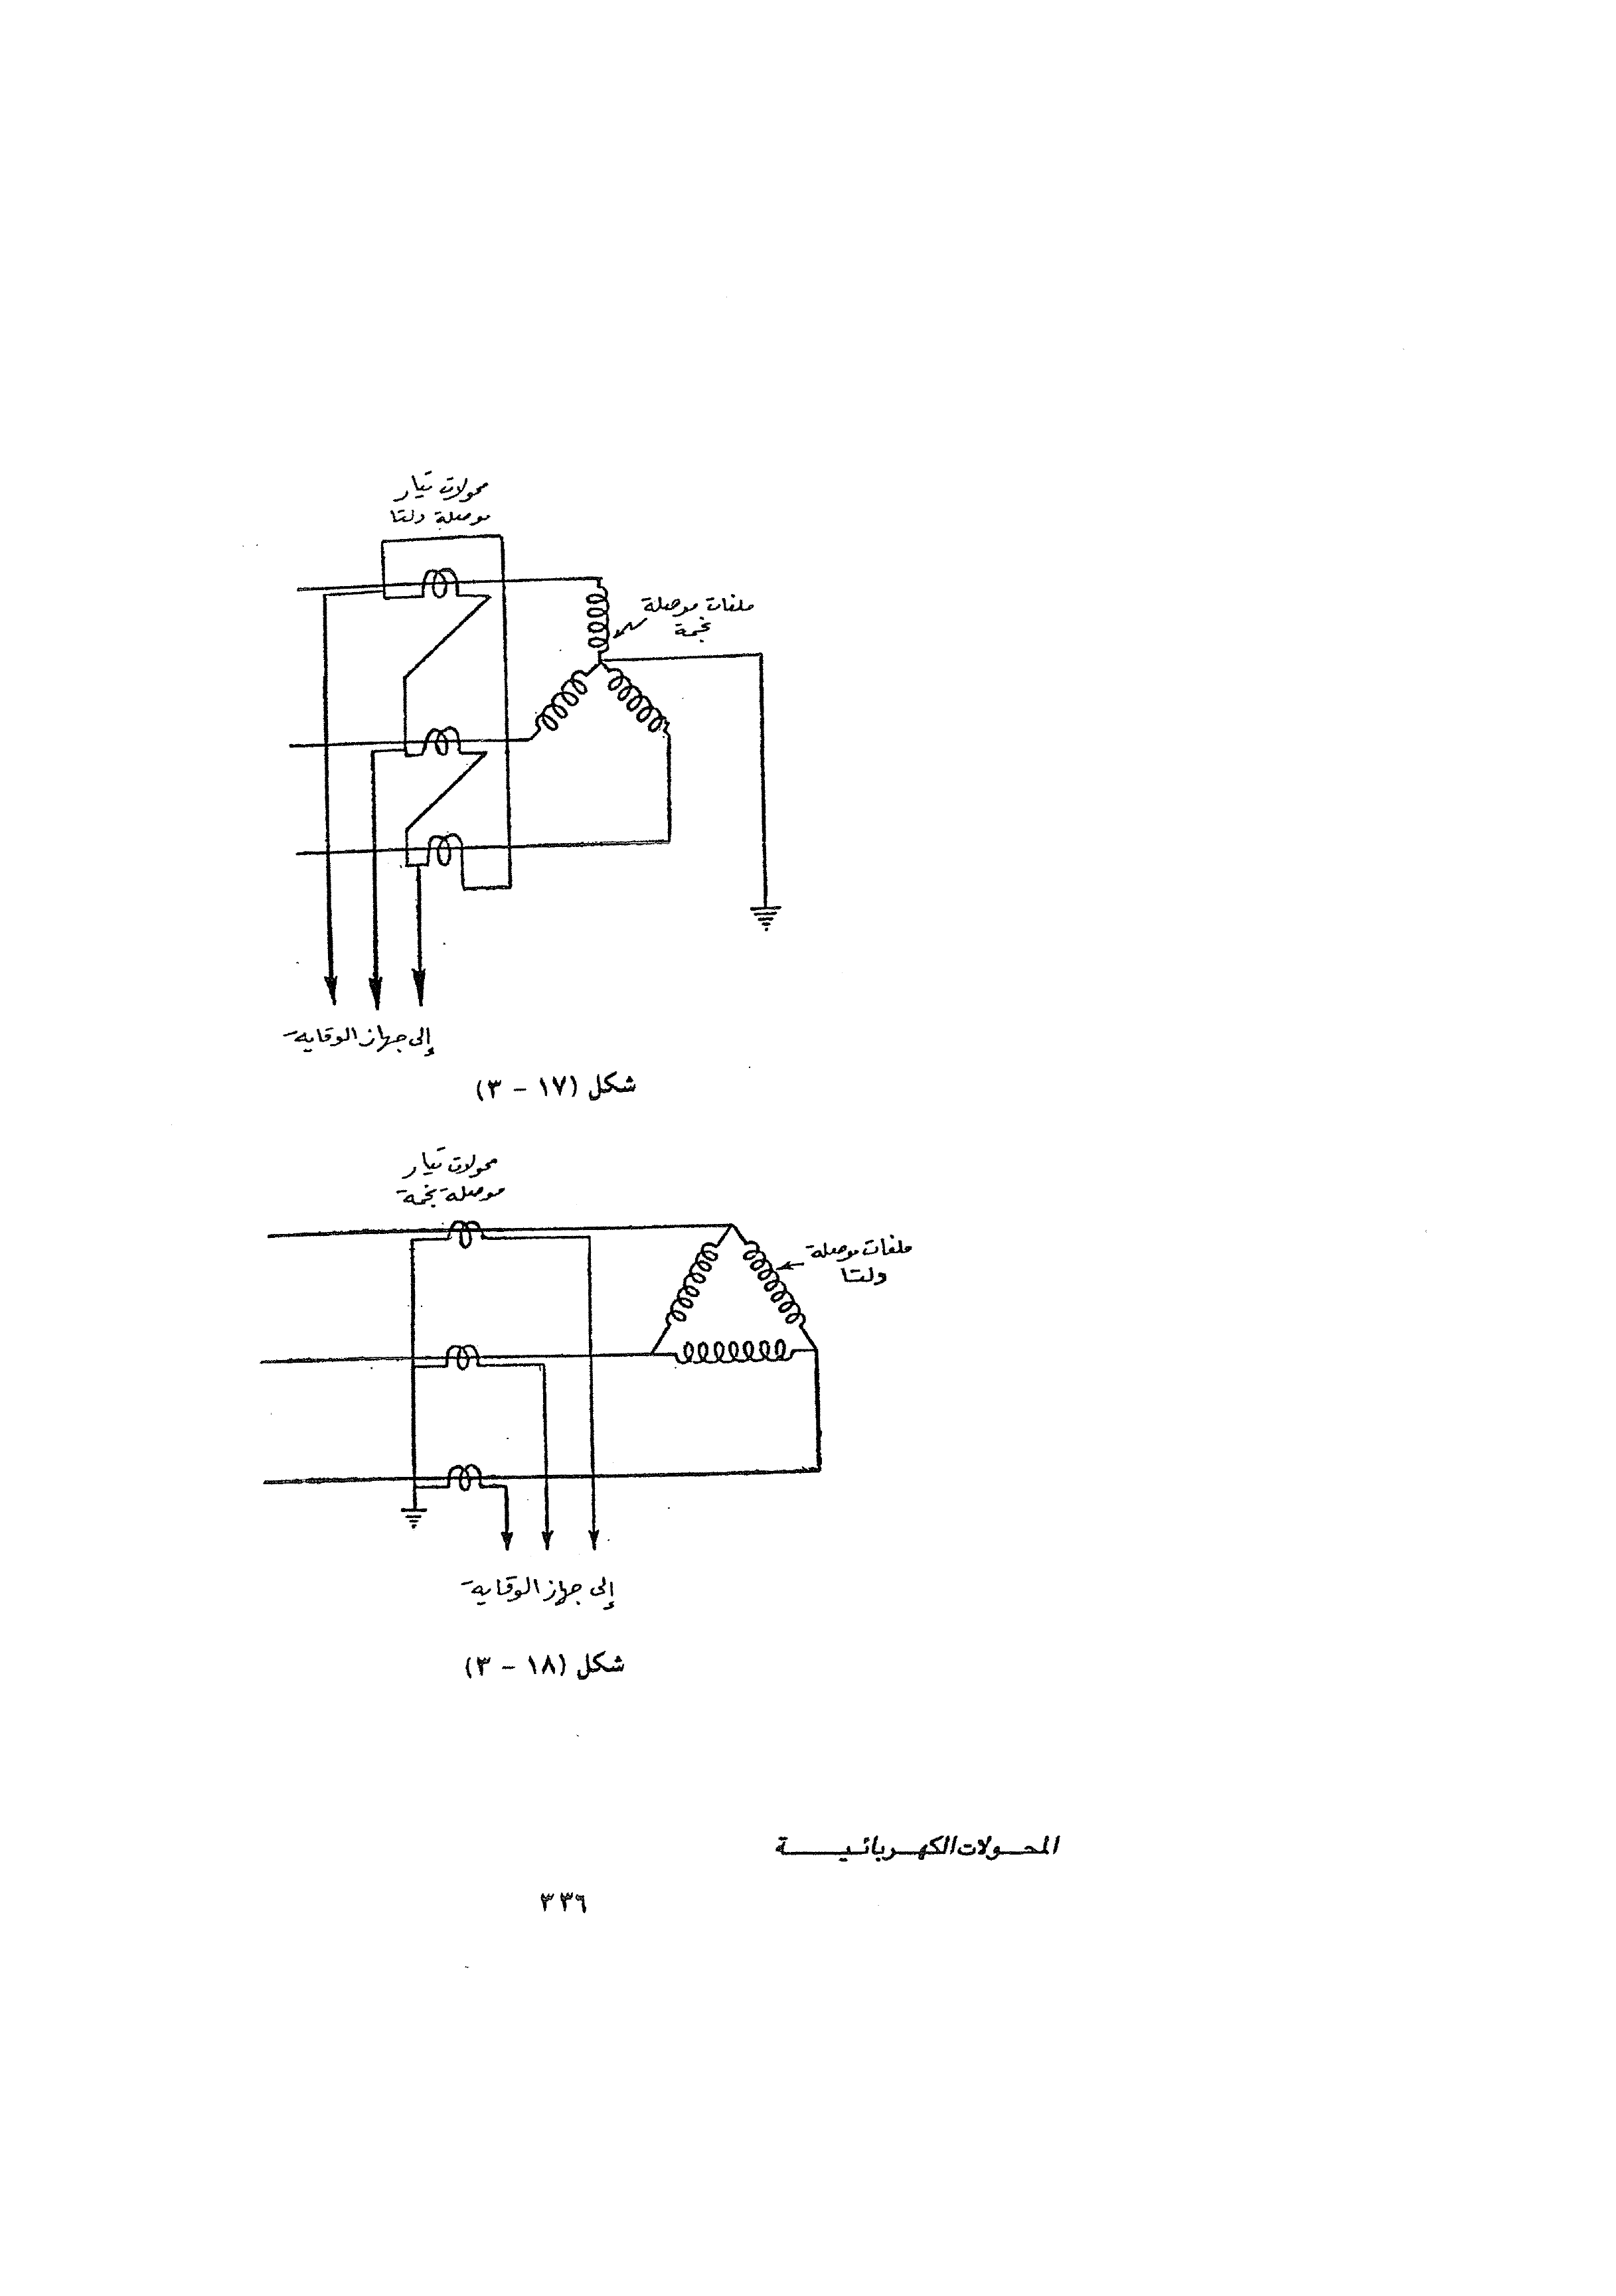 محولات تيار
موصلة دلتا
ملفات موصلة
نجمة
إلى جهاز الوقاية
شكل (١٧ - ٣)
محولات تيار
موصلة نجمة
ملفات موصلة
دلتا
إلى جهاز الوقاية
شكل (١٨ - ٣)
المحولات الكهربائية
٣٣٦